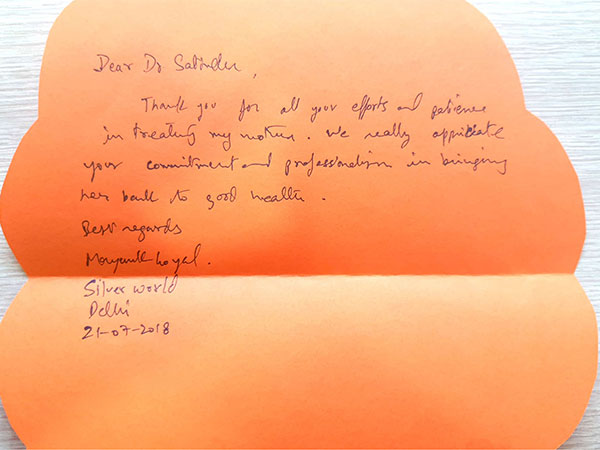 Dear Dr Satinder,
Thank you for all your efforts and patience
in treating my mother. We really appriciate
your commitment and professionalism in bringing
her back to good health.
Best regards
Silver world
Delhi
21-07-2018